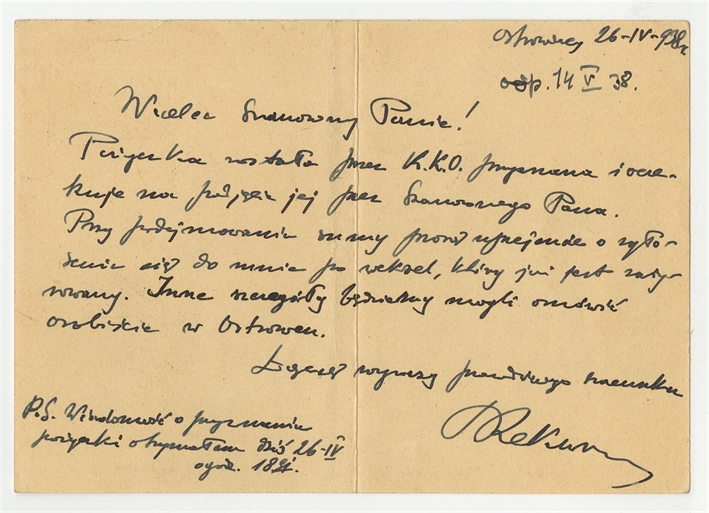 Ostrowiec, 26-IV-938r
odp. 14 V 38.
Wielce Szanowny Panie!
Pożyczka została przez K.K.O. przyznana i ocze-
kuje na podjęcie jej przez Szanownego Pana.
Przy podejmowaniu sumy proszę uprzejmie o zgło-
szenie się do mnie po weksel, który już jest żyro-
wany. Inne szczegóły będziemy mogli omówić
osobiście w Ostrowcu.
Łączę wyrazy prawdziwego szacunku
P.S. Wiadomość o przyznaniu
pożyczki otrzymałem dziś 26-IV
o godz.